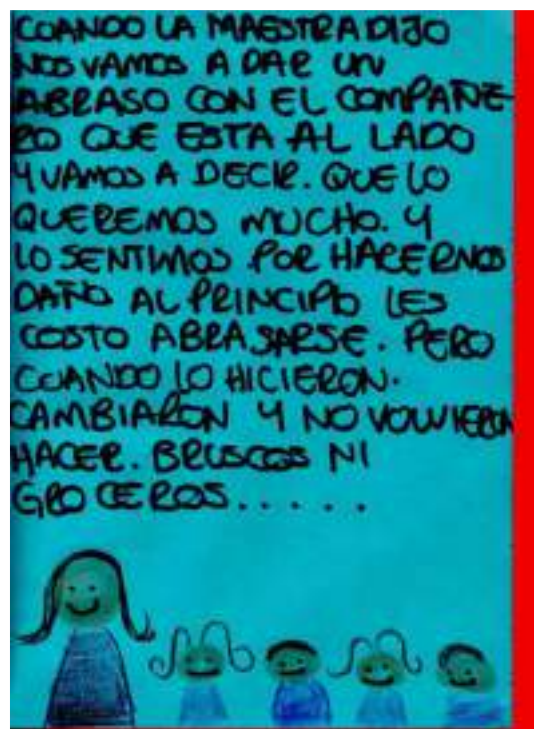 CUANDO LA MAESTRA DIJO
NOS VAMOS A DAR UN
ABRASO CON EL COMPAÑE
RO QUE ESTA AL LADO
Y VAMOS A DECIR. QUE LO
QUEREMOS MUCHO. Y
LO SENTIMOS POR HACERNOS
DAÑO AL PRINCIPIO LES
COSTO ABRASARSE. PERO
CUANDO LO HICIERON.
CAMBIARON Y NO VOLVIERON
HACER. BRUSCOS NI
GROCEROS.....